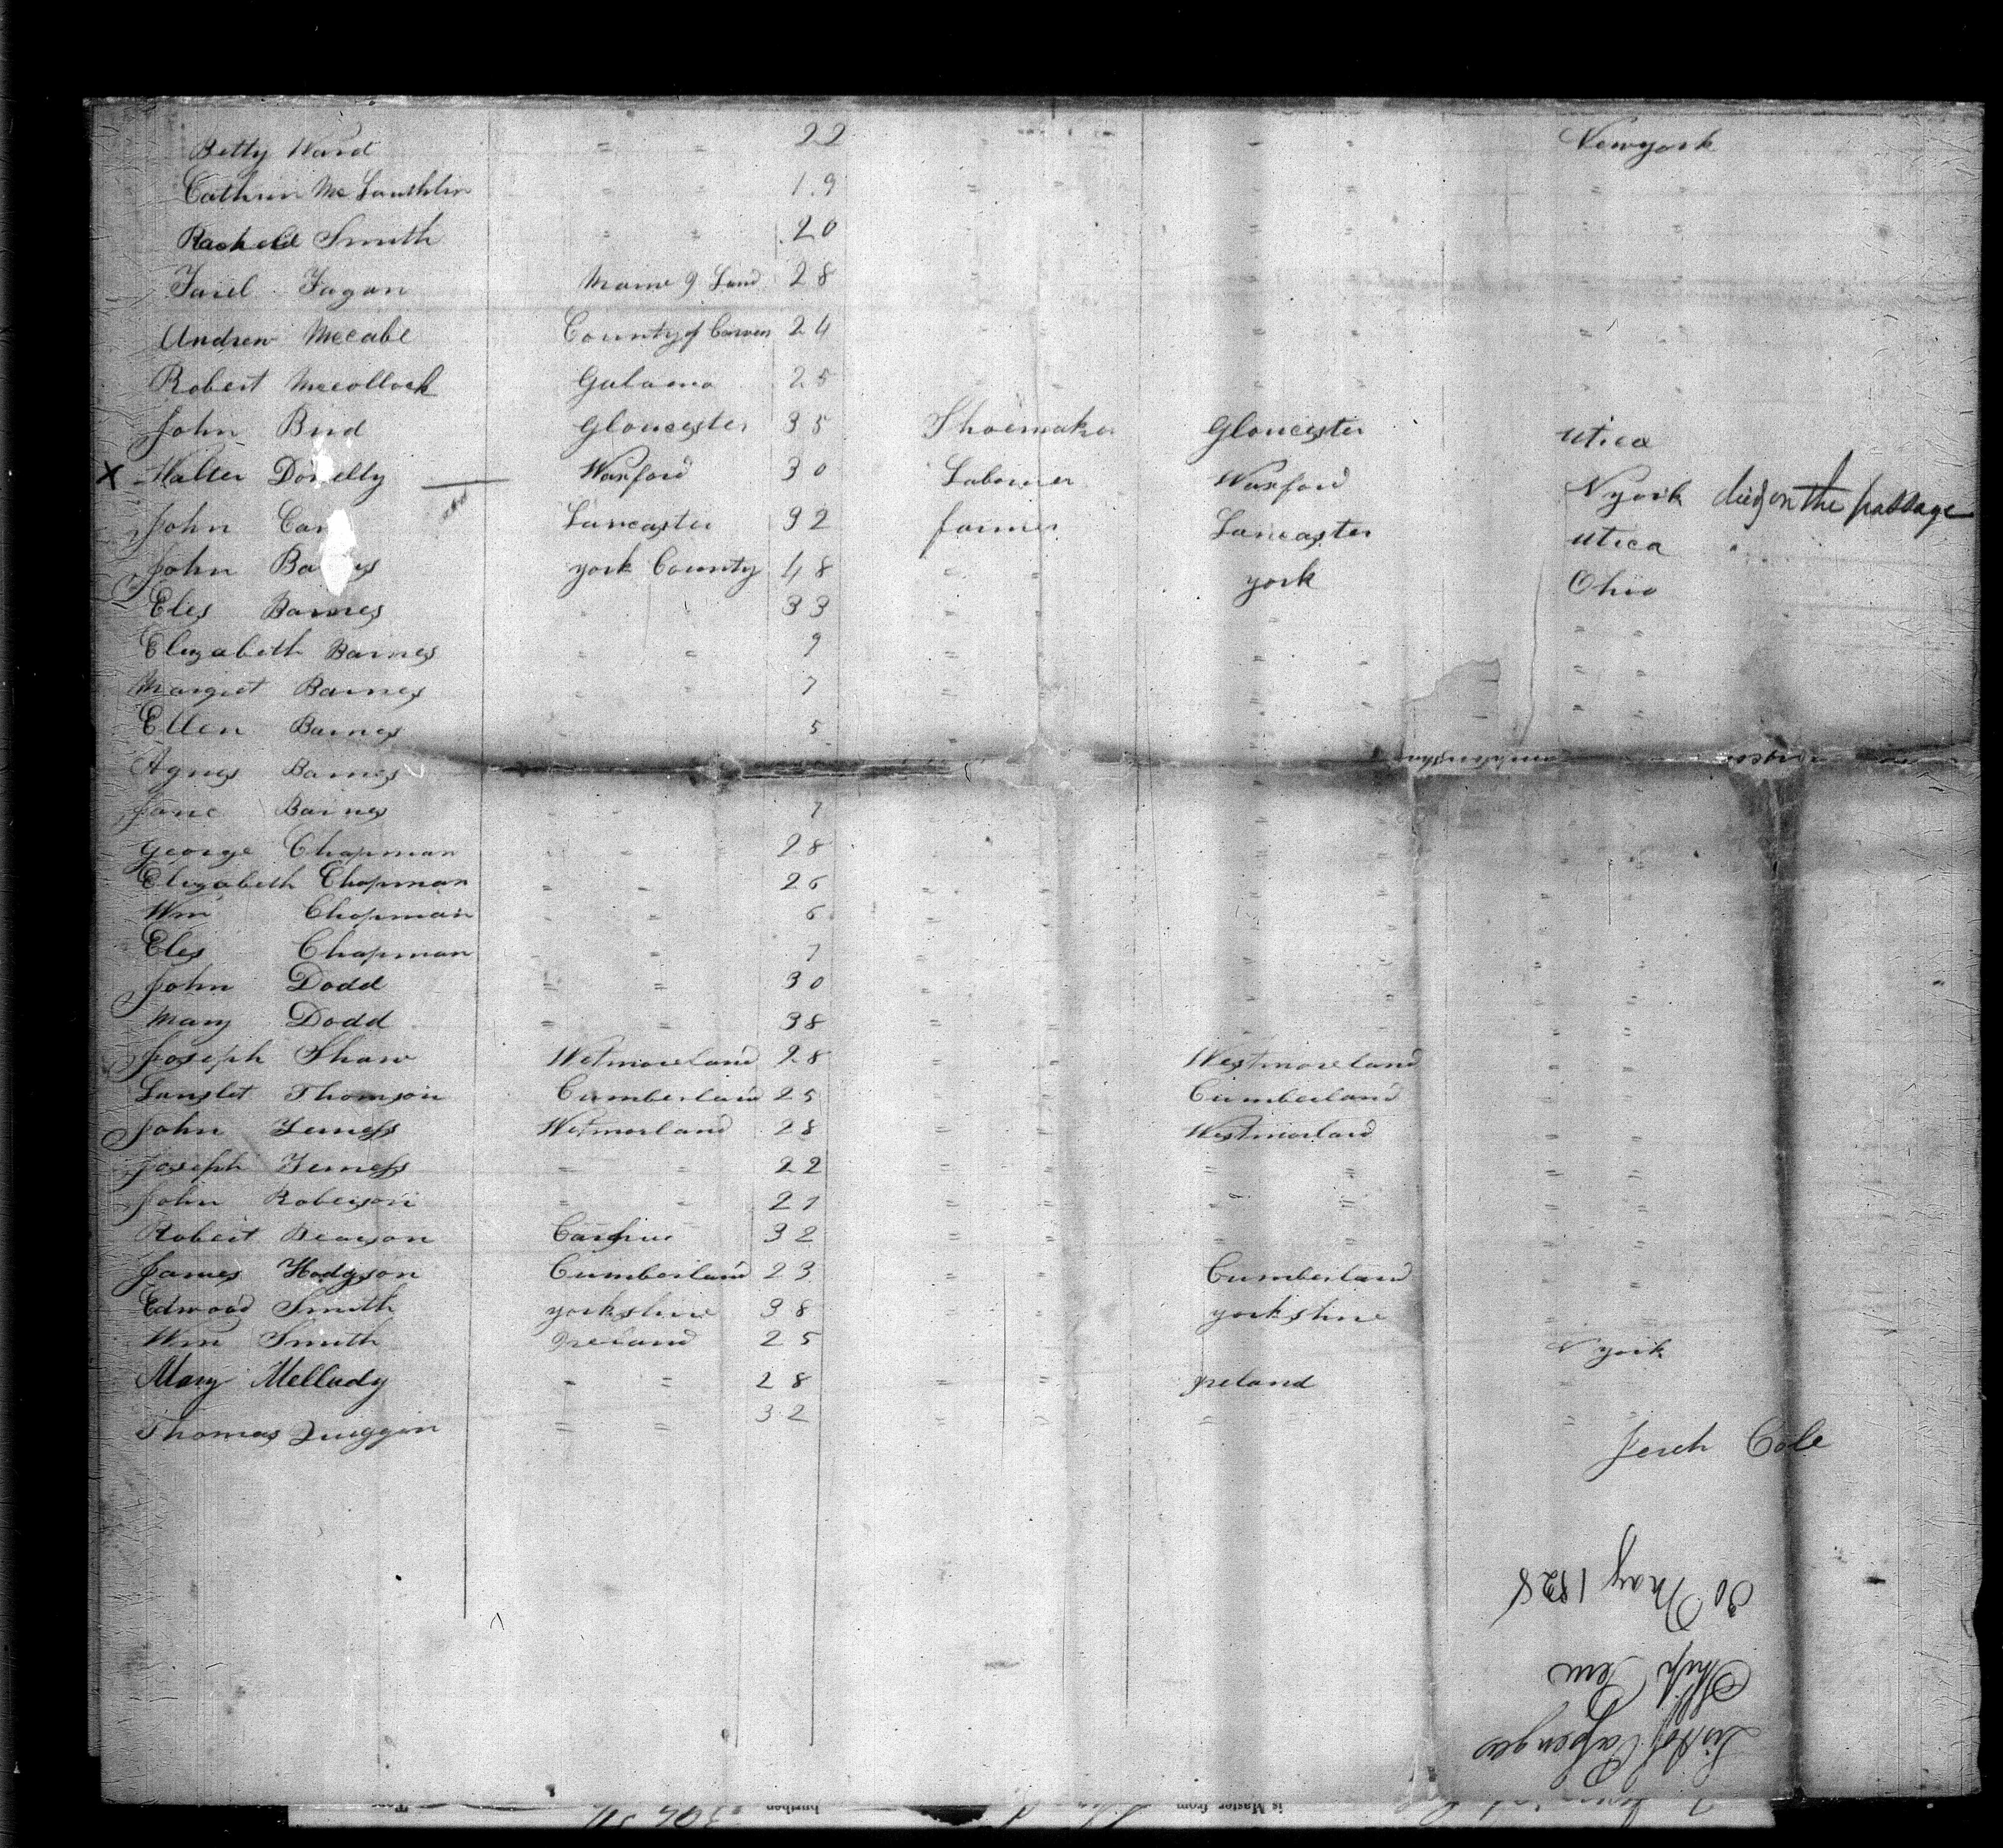 Betty Ward = = 22 - - Newyork
Cathrin McLaushlin = = 19 = = = = =
Rachele Smith = = 20 = = = = =
Farel Fagan 28
Andrew Mccabe County of 24 = = =
Robert Mccollock 25 = = = =
John Bird Gloucester 35 Shoemaker Gloucester utica
X Walter Donelly Waxford 30 Labourer Waxford N york died on the passage
John Lancaster 32 farmer Lancaster utica
John york County 48 = = york Ohio
Eles Barnes 33 = =
Elizabeth Barnes = = 9 = = = = =
Margret Barnes 7 = = = =
Ellen Barnes 5 = =
Agnes Barnes
Jane Barnes 7
George Chapman - - 28
Elizabeth Chapman = = 26 = = = = = =
Wm Chapman - = 6 = = = = =
Eles Chapman - = 7 = = = =
John Dodd = = 30 = = = = = =
Mary Dodd = = 38 = = = = =
Joseph Shaw Wetmoreland 28 = = Westmoreland = =
Lanslet Thomson Cumberland 25 = = Cumberland = =
John Wetmorland 28 = = Westmorland = =
Joseph = = 22 = = = = = =
John Roberson = - 27 = = = = = =
Robert 32 = = = = = =
James Hodgson Cumberland 23 = = Cumberland =
Edward Smith yorkshire 38 = = yorkshire = =
Wm Smith Ireland 25 = = N york
Mary Mellady - = 28 = = Ireland = =
Thomas Quiggin = = 32 = = = = =
Jereh Cole
30 May 1828
Ship
List of Pasenges
is Master from
burthen
Tons